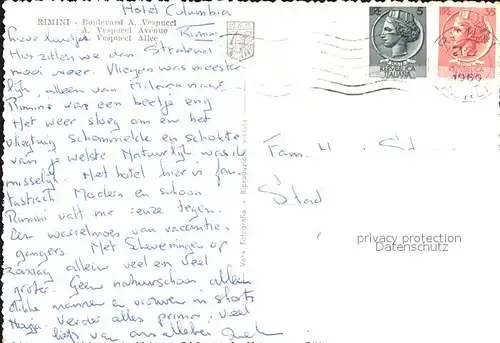 Hotel Columbia
RIMINI - Boulevard A. Vespucci
A. Vespucci Avenue
A. Vespucci Allee
Rimini
Hier zitten we dan. Stralend
mooi weer. Vliegen was meester-
lijk, alleen van Milaan naar
Rimini was een beetje eng
Het weer sloeg om en het
vliegtuig schommelde en schokte
van je welste Natuurlijk was ik
misselijk. Het hotel hier is fan-
tastisch Modern en schoon.
Rimini valt me reuze tegen.
Een warrelmoes van vacantie-
gangers. Met Scheveningen op
zondag alleen veel en veel
groter. Geen natuurschoon, alleen
dikke mannen en vrouwen in shorts
Verder alles prima. Veel
liefs van ons allebei
Vera Fotografia - Riproduzione vietata
5
REPUBBLICA
ITALIANA
REPUBBLICA
ITALIANA
1969
Fam.
Stad
privacy protection
Datenschutz